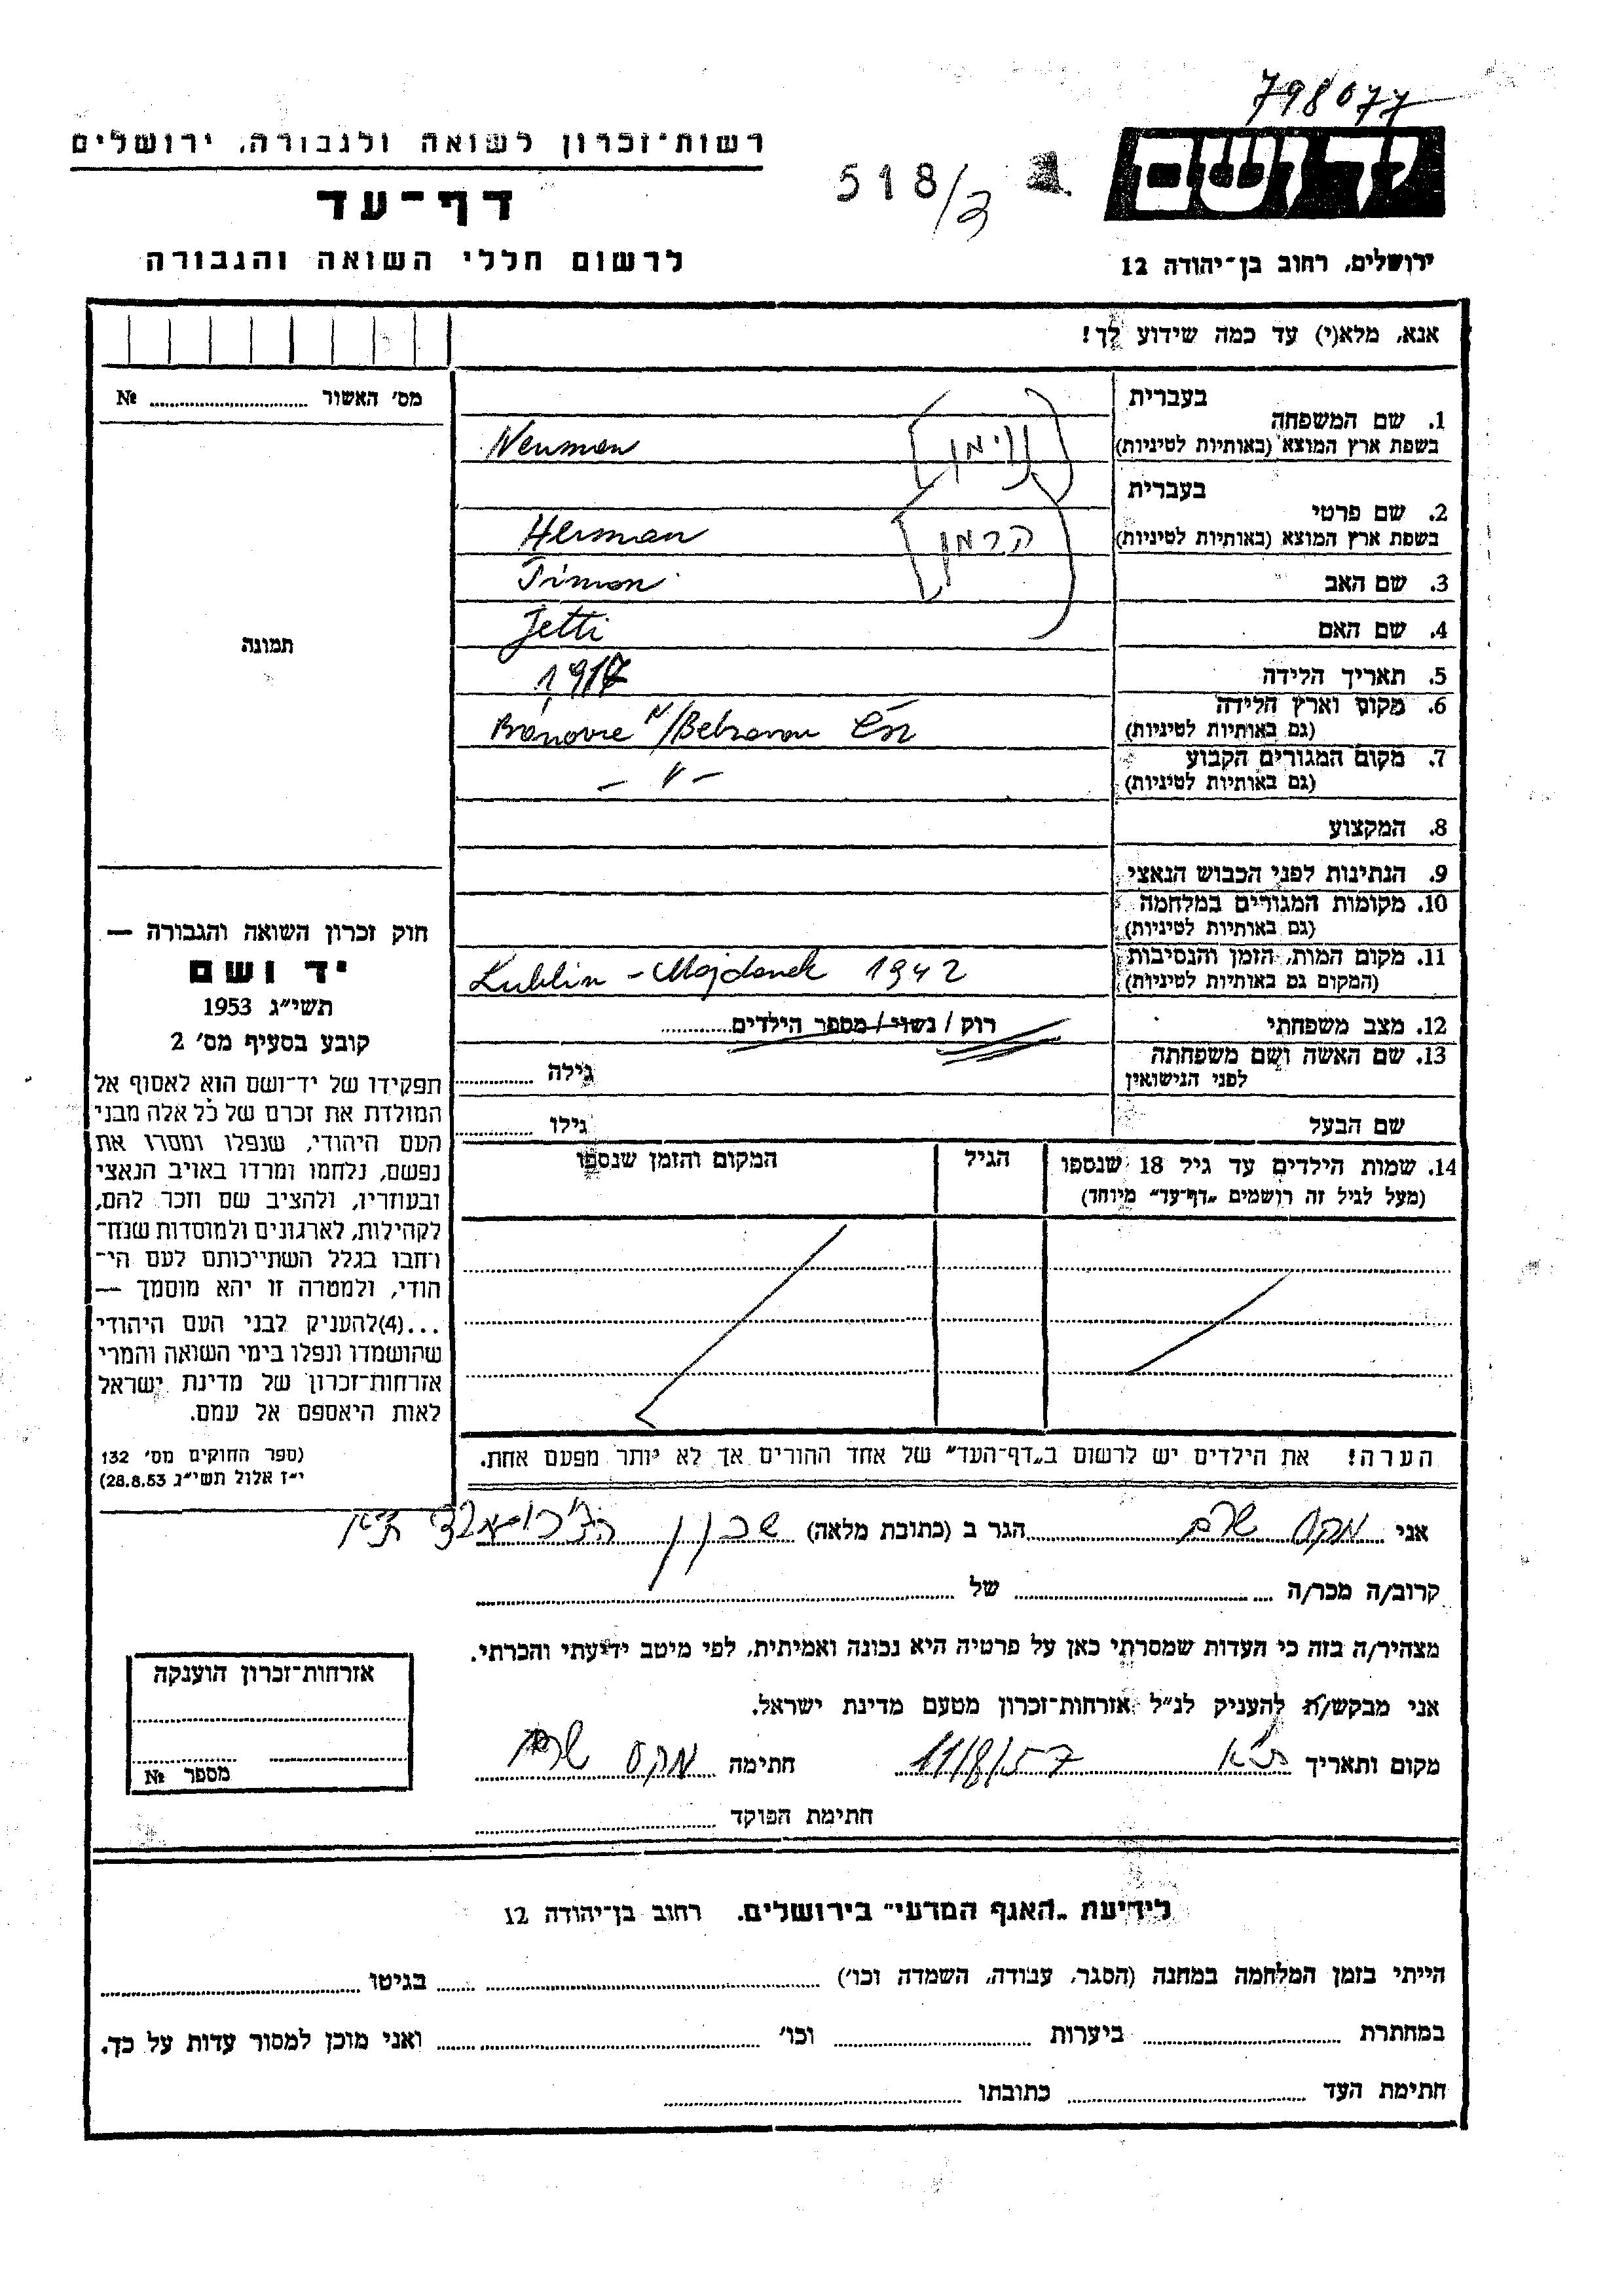 798077
רשות־זכרון לשואה ולגבורה, ירושלים
דף־עד
518/3
יד ושם
לרשום חללי השואה והגבורה
ירושלים, רחוב בן־יהודה 12
אנא, מלא(י) עד כמה שידוע לך!
מס׳ האשור № 
בעברית
1. שם המשפחה
בשפת ארץ המוצא (באותיות לטיניות)
Neuman [נוימן]
בעברית
2. שם פרטי
בשפת ארץ המוצא (באותיות לטיניות)
Herman [הרמן]
3. שם האב
Simon
4. שם האם
Jetti
תמונה
5. תאריך הלידה
1917
6. מקום וארץ הלידה
(גם באותיות לטיניות)
7. מקום המגורים הקבוע
(גם באותיות לטיניות)
– „ –
8. המקצוע
9. הנתינות לפני הכבוש הנאצי
10. מקומות המגורים במלחמה
(גם באותיות לטיניות)
11. מקום המות, הזמן והנסיבות
(המקום גם באותיות לטיניות)
Lublin – Majdanek 1942
12. מצב משפחתי
רוק / נשוי / מספר הילדים
13. שם האשה ושם משפחתה
לפני הנישואין
גילה
שם הבעל
גילו
14. שמות הילדים עד גיל 18 שנספו
(מעל לגיל זה רושמים „דף־עד״ מיוחד)
הגיל
המקום והזמן שנספו
חוק זכרון השואה והגבורה —
יד ושם
תשי״ג 1953
קובע בסעיף מס׳ 2
תפקידו של יד־ושם הוא לאסוף אל
המולדת את זכרם של כל אלה מבני
העם היהודי, שנפלו ומסרו את
נפשם, נלחמו ומרדו באויב הנאצי
ובעוזריו, ולהציב שם וזכר להם,
לקהילות, לארגונים ולמוסדות שנח־
רחבו בגלל השתייכותם לעם הי־
הודי, ולמטרה זו יהא מוסמך —
...(4)להעניק לבני העם היהודי
שהושמדו ונפלו בימי השואה והמרי
אזרחות־זכרון של מדינת ישראל
לאות היאספם אל עמם.
(ספר החוקים מס׳ 132
י״ז אלול תשי״ג 28.8.53)
הערה! את הילדים יש לרשום ב„דף־העד״ של אחד ההורים אך לא יותר מפעם אחת.
אני מקס הגר ב (כתובת מלאה) שכון
קרוב/ה מכר/ה של
מצהיר/ה בזה כי העדות שמסרתי כאן על פרטיה היא נכונה ואמיתית, לפי מיטב ידיעתי והכרתי.
אני מבקש/ת להעניק לנ״ל אזרחות־זכרון מטעם מדינת ישראל.
מקום ותאריך ת״א 11/8/57 חתימה מקס
חתימת הפוקד
אזרחות־זכרון הוענקה
מספר №
לידיעת „האגף המדעי״ בירושלים. רחוב בן־יהודה 12
הייתי בזמן המלחמה במחנה (הסגר, עבודה, השמדה וכו׳) בגיטו
במחתרת ביערות וכו׳ ואני מוכן למסור עדות על כך.
חתימת העד כתובתו